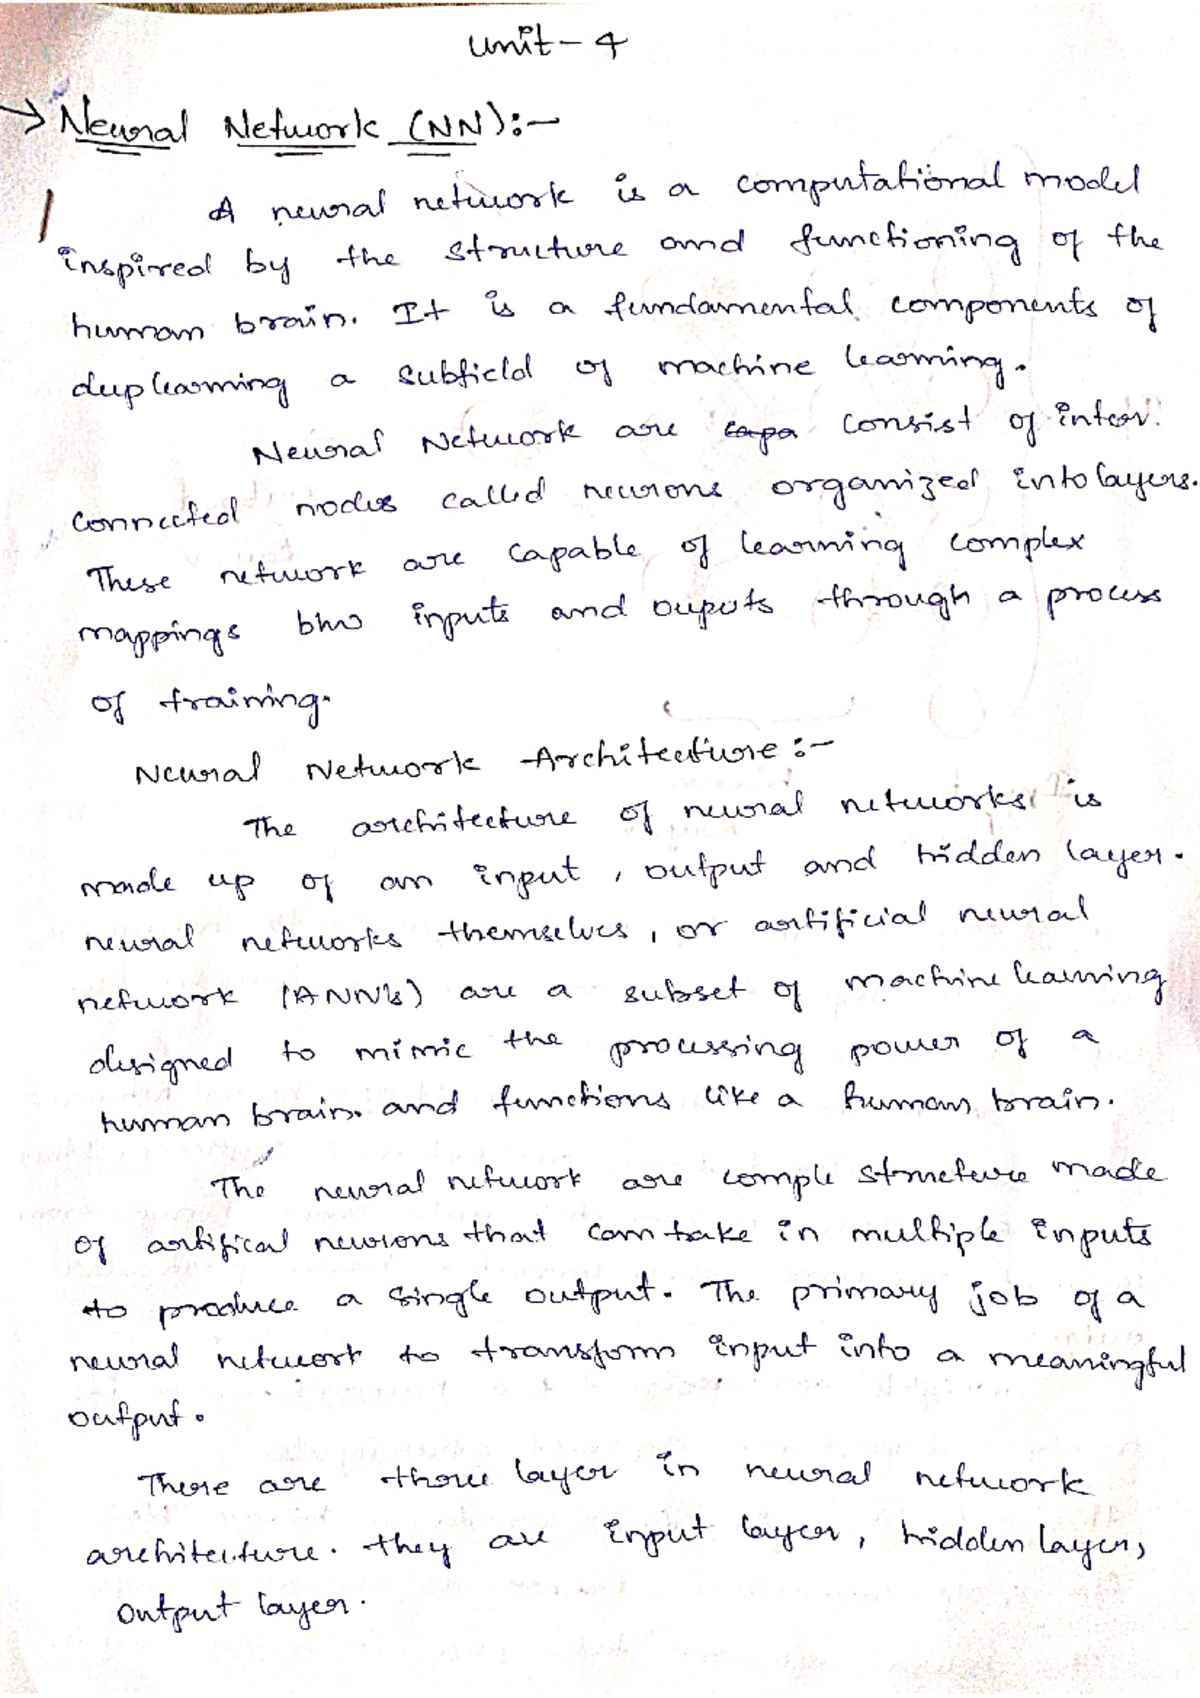 Unit - 4
→ Neural Network (NN):-
A neural network is a computational model
inspired by the structure and functioning of the
human brain. It is a fundamental components of
deep learning a subfield of machine learning.
Neural Network are capa consist of inter.
connected nodes called neurons organized into layers.
These network are capable of learning complex
mappings btw inputs and ouputs through a process
of training.
Neural Network Architecture :-
The architecture of neural networks is
made up of an input, output and hidden layer.
neural networks themselves, or artificial neural
network (ANN's) are a subset of machine learning
designed to mimic the processing power of a
human brain. and functions like a human brain.
The neural network are comple structure made
of artifical neurons that can take in multiple inputs
to produce a single output. The primary job of a
neural network to transform input into a meaningful
output.
There are three layer in neural network
architecture. they are input layer, hidden layer,
output layer.